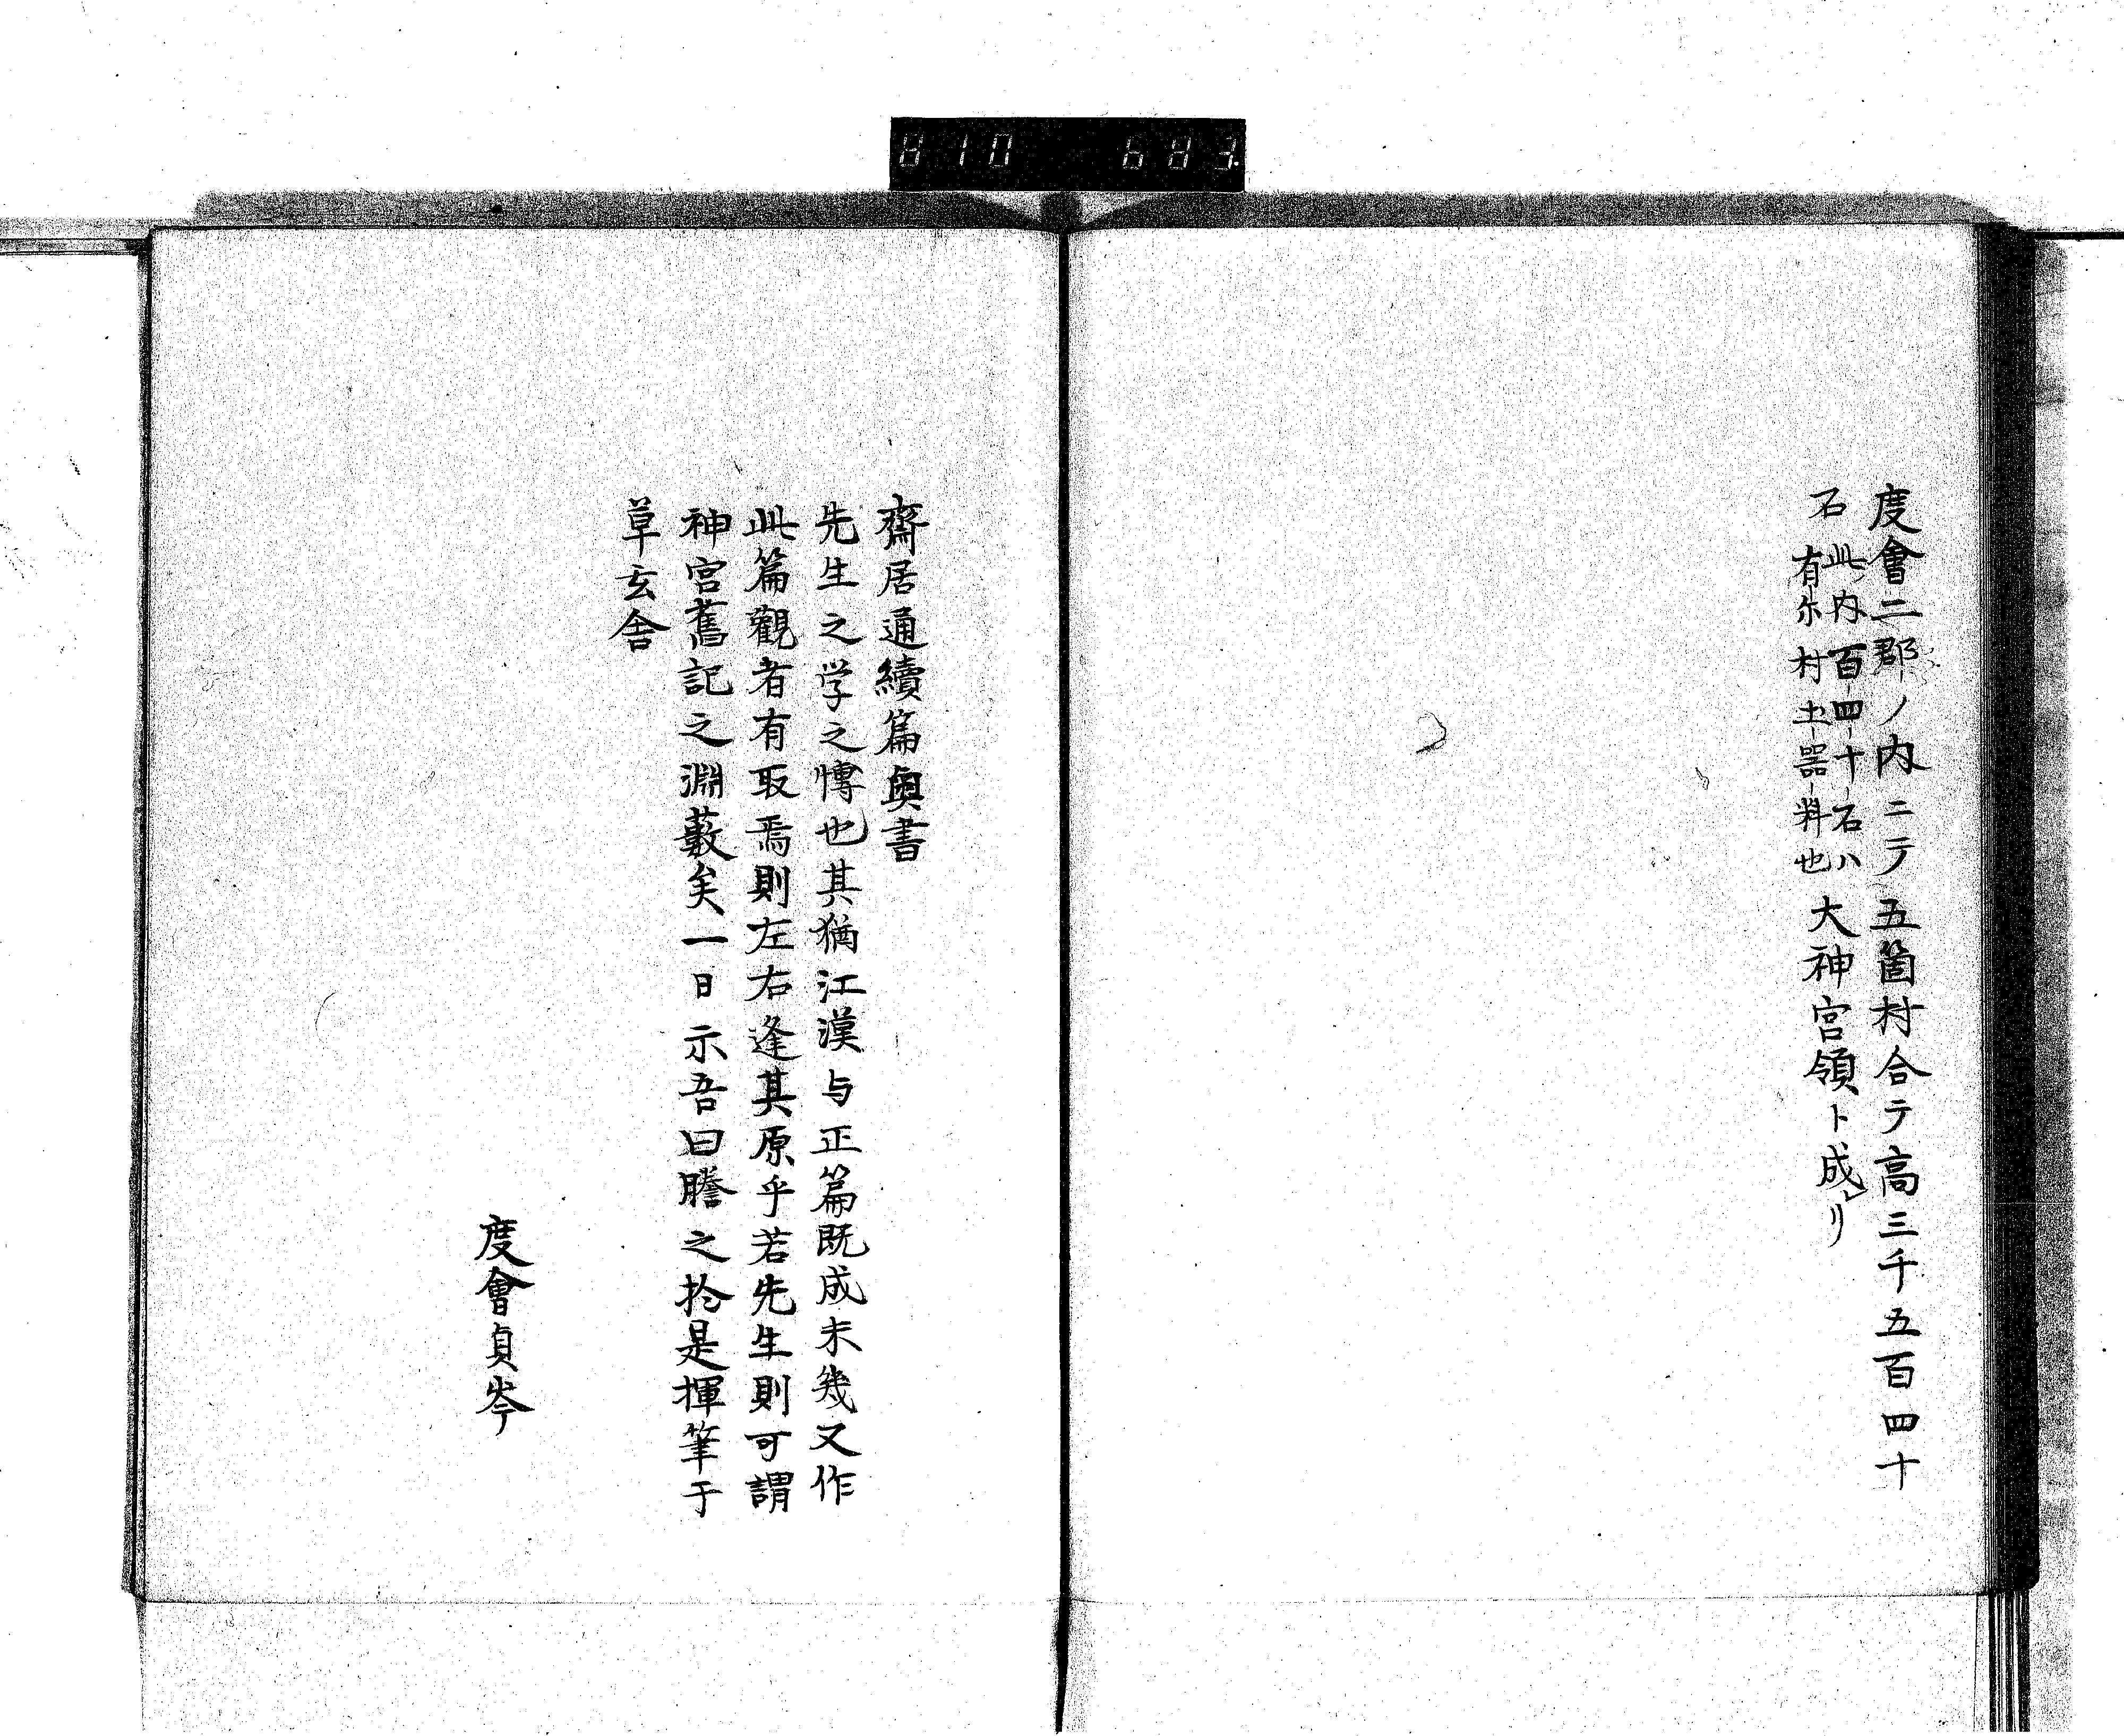 810 683.
度會二郡ノ内ニテ五箇村合テ高三千五百四十
石
此内百四十石ハ
有尓村土器料也
大神宮領ト成レリ
齋居通續篇奥書
先生之学之博也其猶江漢与正篇既成未幾又作
此篇觀者有取焉則左右逢其原乎若先生則可謂
神宮舊記之淵藪矣一日示吾曰謄之於是揮筆于
草玄舎
度會貞岑